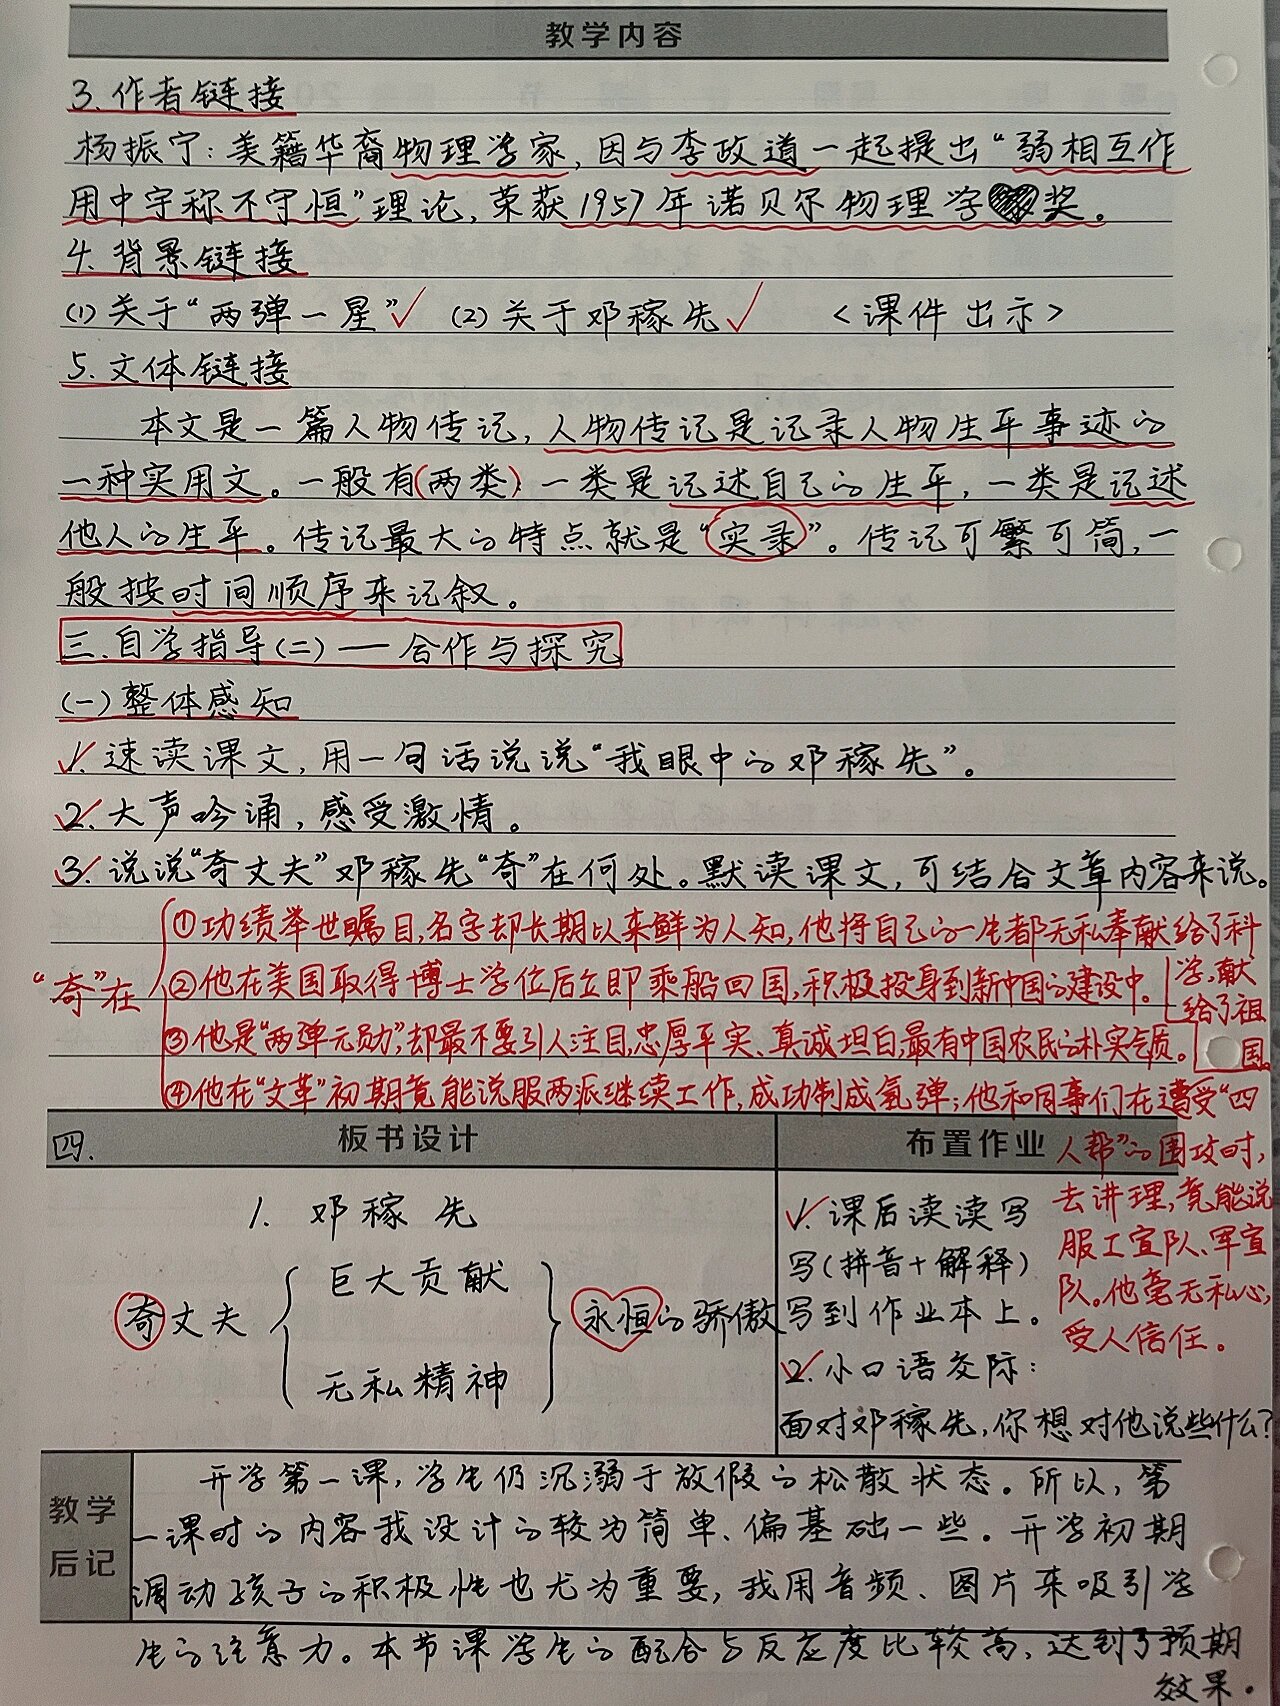 教学内容
3.作者链接
杨振宁：美籍华裔物理学家，因与李政道一起提出“弱相互作
用中宇称不守恒”理论，荣获1957年诺贝尔物理学奖。
4.背景链接
(1)关于“两弹一星”✓ (2)关于邓稼先✓ <课件出示>
5.文体链接
本文是一篇人物传记，人物传记是记录人物生平事迹的
一种实用文。一般有(两类)一类是记述自己的生平，一类是记述
他人的生平。传记最大的特点就是“实录”。传记可繁可简，一
般按时间顺序来记叙。
三.自学指导(二)——合作与探究
(一)整体感知
1.速读课文，用一句话说说“我眼中的邓稼先”。
2.大声吟诵，感受激情。
3.说说“奇丈夫”邓稼先“奇”在何处。默读课文，可结合文章内容来说。
“奇”在
①功绩举世瞩目，名字却长期以来鲜为人知，他将自己的一生都无私奉献给了科
学，献
给了祖
国。
②他在美国取得博士学位后立即乘船回国，积极投身到新中国的建设中。
③他是“两弹元勋”，却最不要引人注目，忠厚平实、真诚坦白，最有中国农民的朴实气质。
④他在“文革”初期竟能说服两派继续工作，成功制成氢弹；他和同事们在遭受“四
人帮”的围攻时，
去讲理，竟能说
服工宣队、军宣
队。他毫无私心，
受人信任。
四.
板书设计
1. 邓稼先
奇丈夫
巨大贡献
无私精神
永恒的骄傲
布置作业
1.课后读读写
写(拼音+解释)
写到作业本上。
2.小口语交际：
面对邓稼先，你想对他说些什么？
教学
后记
开学第一课，学生仍沉溺于放假的松散状态。所以，第
一课时的内容我设计的较为简单、偏基础一些。开学初期
调动孩子的积极性也尤为重要，我用音频、图片来吸引学
生的注意力。本节课学生的配合与反应度比较高，达到了预期
效果。